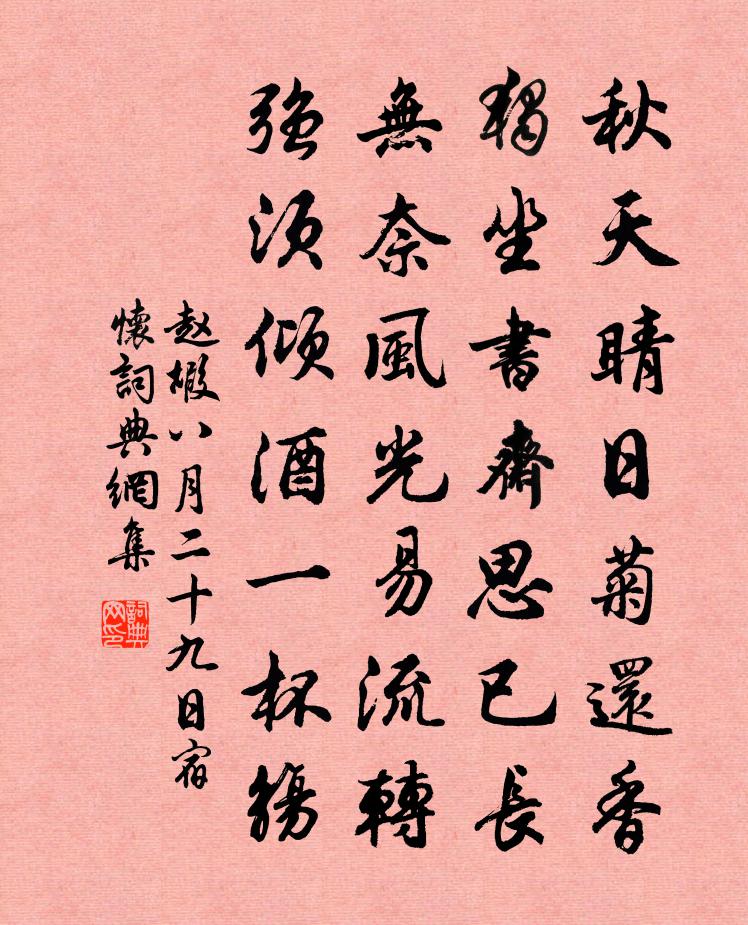 秋天晴日菊還香
獨坐書齋思已長
無奈風光易流轉
強須傾酒一杯觴
赵嘏八月二十九日宿
懷詞典網集
詞典網印